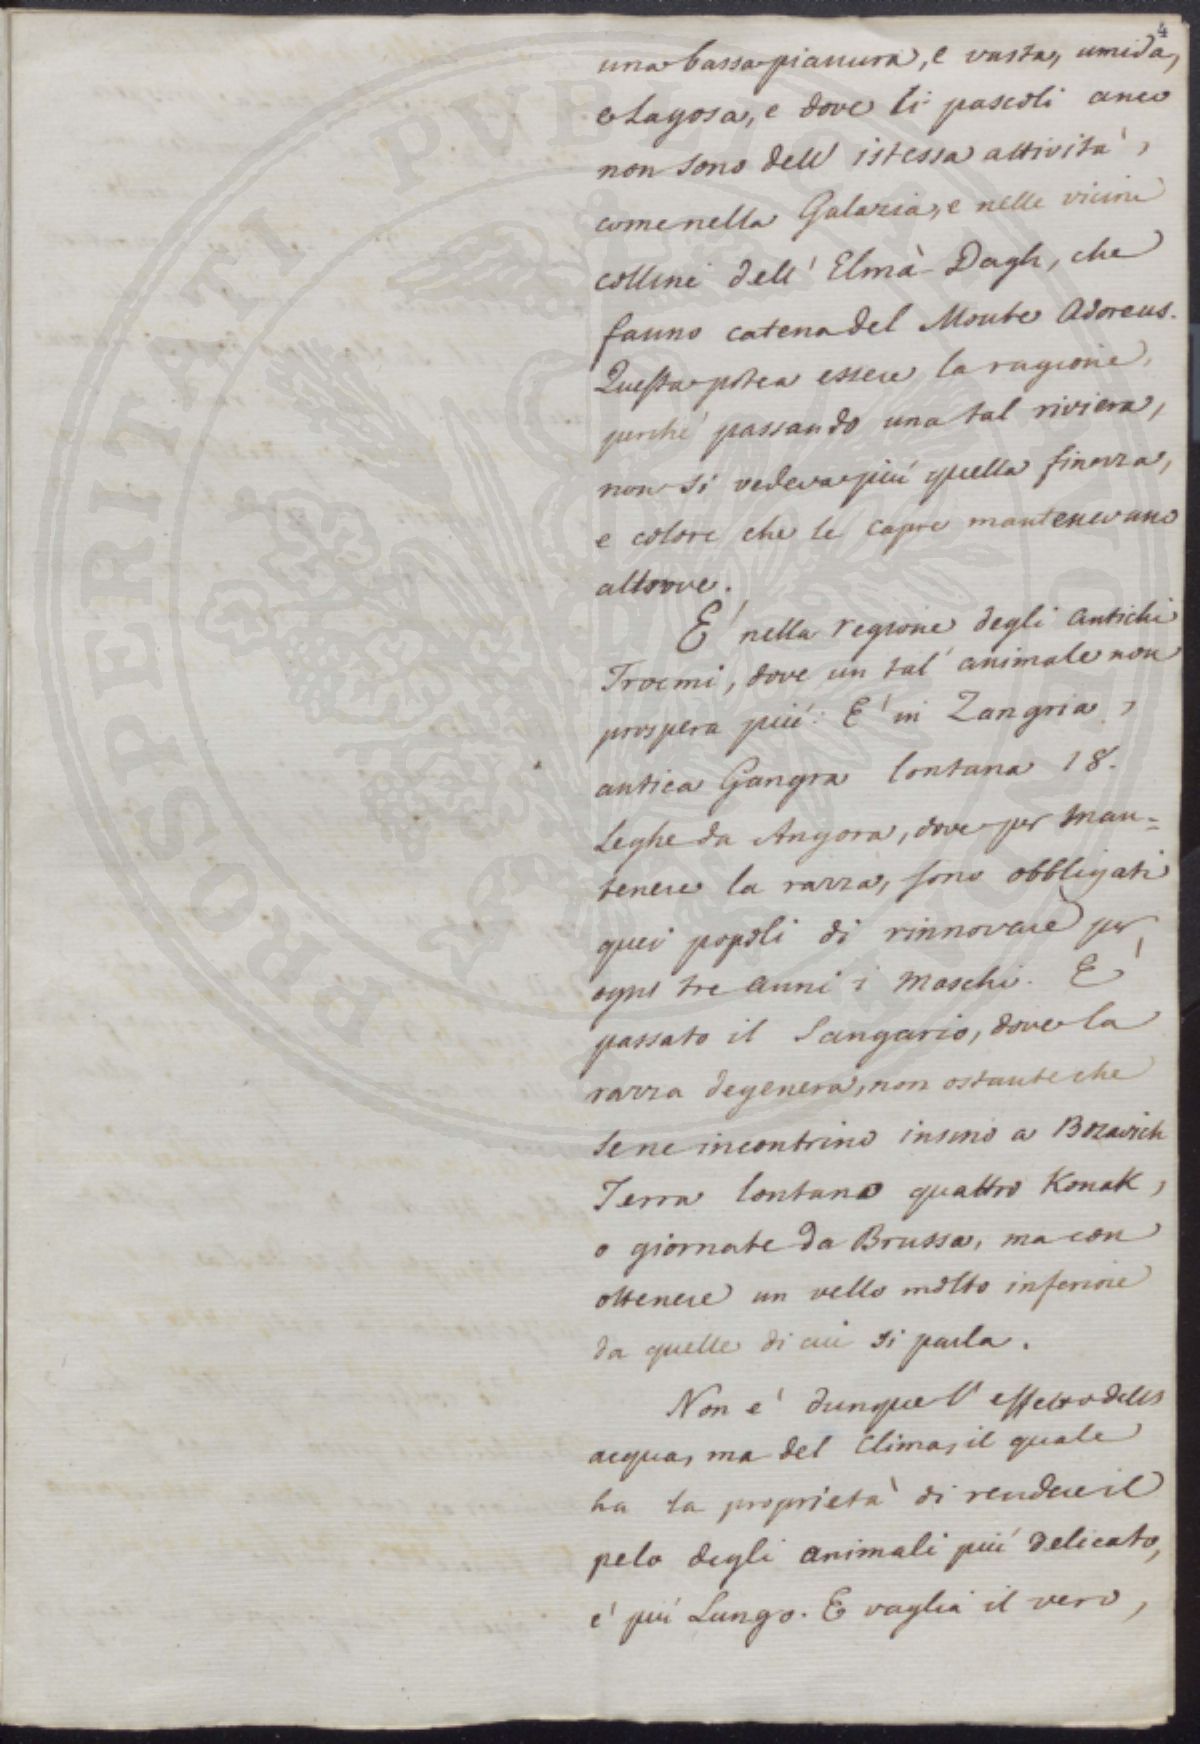 4
una bassa pianura, e vasta, umida,
e Lagosa, e dove li pascoli anco
non sono dell' istessa attività,
come nella Galazia, e nelle vicine
colline dell' Elmà Dagh, che
fanno catena del Monte Adoreus.
Questa potea essere la ragione,
perché passando una tal riviera,
non si vedeva più quella finezza,
e colore che le capre mantenevano
altrove.
E' nella regione degli antichi
Troemi, dove un tal' animale non
prospera più: E' in Zangria,
antica Gangra lontana 18.
Leghe da Angora, dove per man=
tenere la razza, sono obbligati
quei popoli di rinnovare per
ogni tre anni i Maschi. E'
passato il Sangario, dove la
razza degenera, non ostante che
se ne incontrino insino a Bozavich
Terra lontana quattro Konak,
o giornate da Brussa, ma con
ottenere un vello molto inferiore
da quelle di cui si parla.
Non e' dunque l' effetto dell'
acqua, ma del Clima, il quale
ha la proprietà di rendere il
pelo degli animali più delicato,
e' più Lungo. E vaglia il vero,
PROSPERITATI PVBLICAE AVGENDAE